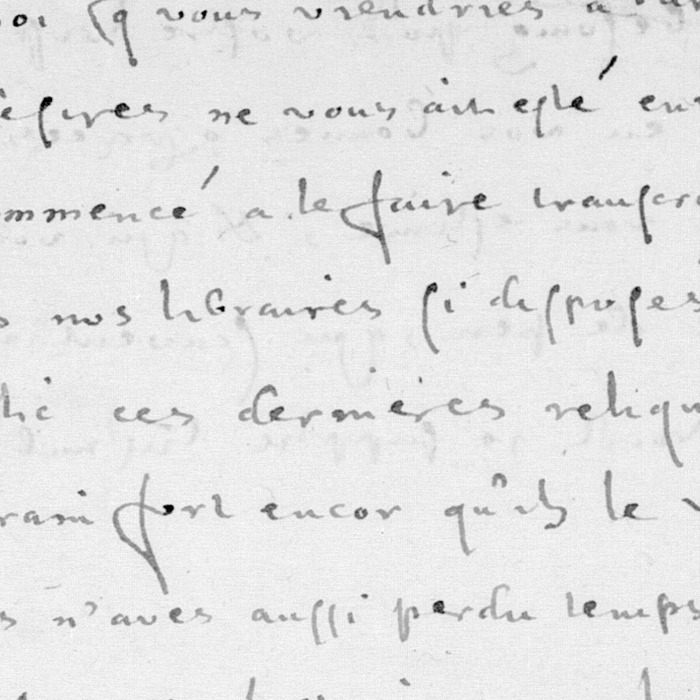 q vous viendries a
ne vous ait esté
mmencé a le faire transcr
nos libraires si disposes
ces dernieres reliqu
fort encor qu'ils le
s n'aves aussi perdu temps